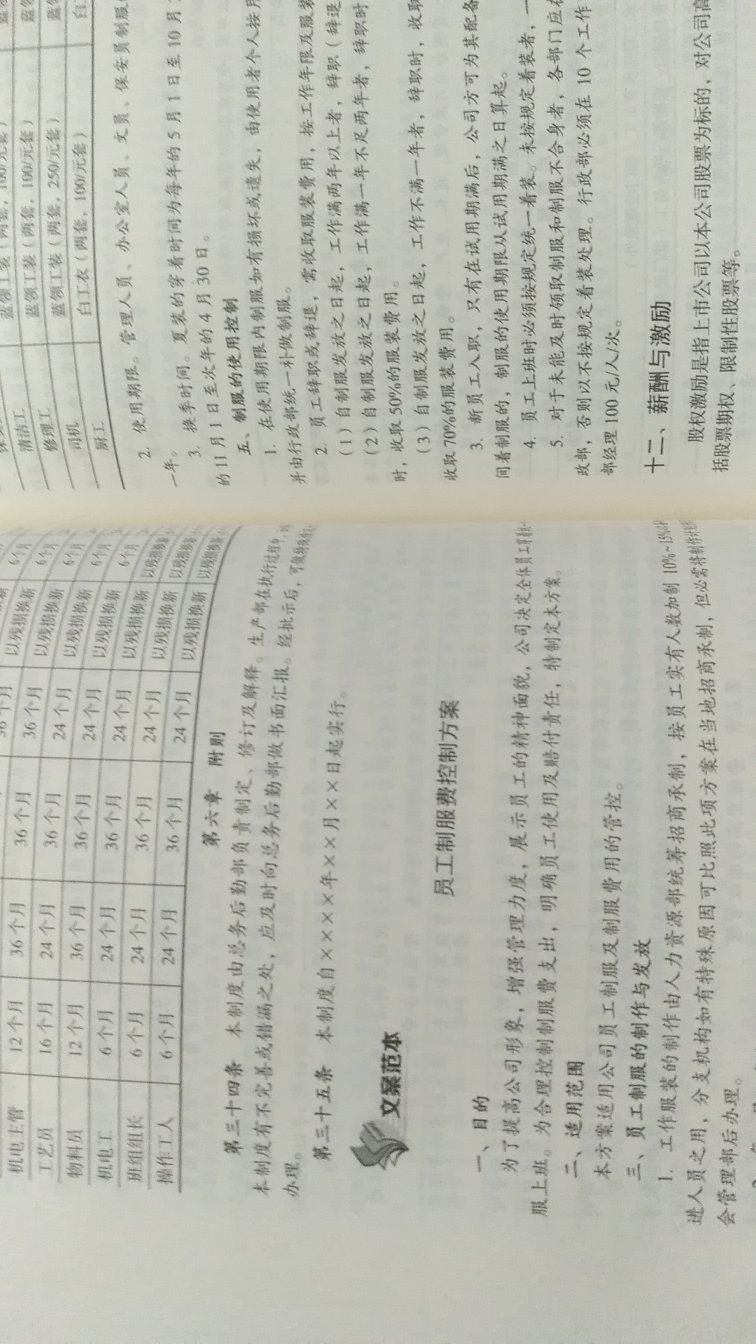 机电主管 12个月 36个月 36个月 36个月 以残损换新 6个月
工艺员 16个月 24个月 36个月 24个月 以残损换新 6个月
物料员 12个月 36个月 36个月 24个月 以残损换新 6个月
机电工 6个月 24个月 36个月 24个月 以残损换新 6个月
班组组长 6个月 24个月 36个月 24个月 以残损换新 以残损换新
操作工人 6个月 24个月 36个月 24个月 以残损换新 以残损换新
第六章 附则
第三十四条 本制度由总务后勤部负责制定、修订及解释。生产部在执行过程中,
本制度有不完善或错漏之处,应及时向总务后勤部做书面汇报。经批示后,可做
办理。
第三十五条 本制度自××××年××月××日起实行。
文案范本
员工制服费控制方案
一、目的
为了提高公司形象,增强管理力度,展示员工的精神面貌,公司决定全体员工穿
服上班。为合理控制制服费支出,明确员工使用及赔付责任,特制定本方案。
二、适用范围
本方案适用公司员工制服及制服费用的管控。
三、员工制服的制作与发放
1. 工作服装的制作由人力资源部统筹招商承制,按员工实有人数加制 10%~15%
进人员之用,分支机构如有特殊原因可比照此项方案在当地招商承制,但必需将制作
会管理部后办理。
清洁工 蓝领工装(两套,100/元套)
修理工 蓝领工装(两套,250/元套)
司机
厨工 白工衣(两套,100/元套)
2. 使用期限。管理人员、办公室人员、文员、保安员制服
一年。
3. 换季时间。夏装的穿着时间为每年的 5 月 1 日至 10 月
的 11 月 1 日至次年的 4 月 30 日。
五、制服的使用控制
1. 在使用期限内制服如有损坏或遗失,由使用者个人按
并由行政部统一补做制服。
2. 员工辞职或辞退,需收取服装费用,按工作年限及服装
(1)自制服发放之日起,工作满两年以上者,辞职(辞退
(2)自制服发放之日起,工作满一年不足两年者,辞职时
时,收取 50%的服装费用。
(3)自制服发放之日起,工作不满一年者,辞职时,收取
收取 70%的服装费用。
3. 新员工入职,只有在试用期满后,公司方可为其配备
间着制服的,制服的使用期限从试用期满之日算起。
4. 员工上班时必须按规定统一着装。未按规定着装者,一
5. 对于未能及时领取制服和制服不合身者,各部门应在
政部,否则以不按规定着装处理。行政部必须在 10 个工作
部经理 100 元/人/次。
十二、薪酬与激励
股权激励是指上市公司以本公司股票为标的,对公司高
括股票期权、限制性股票等。